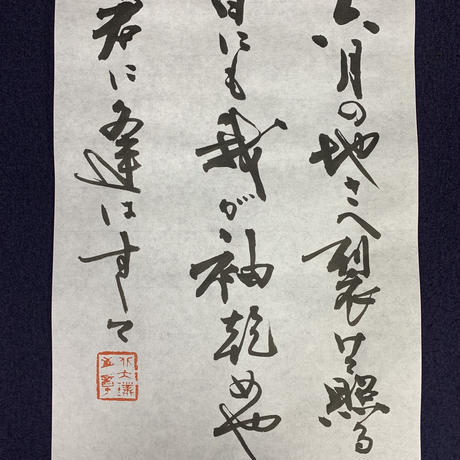 六月の地さへ裂けて照る
日にも我が袖乾めや
君に逢はずして